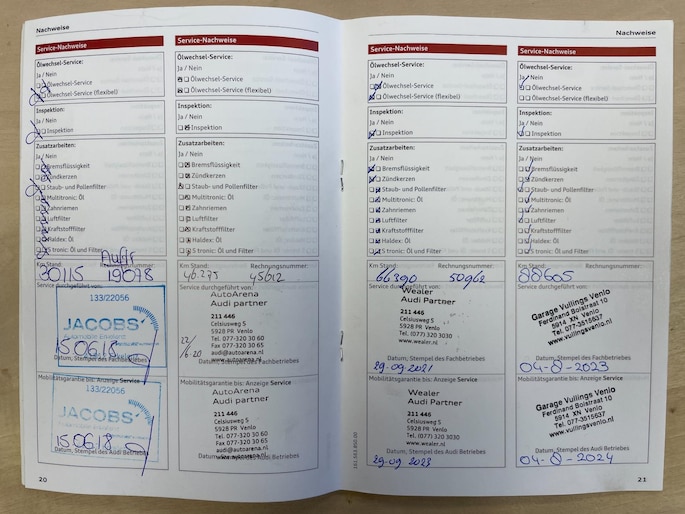 Nachweise
Service-Nachweise
Ölwechsel-Service:
Ja / Nein
Ölwechsel-Service
Ölwechsel-Service (flexibel)
Inspektion:
Ja / Nein
Inspektion
Zusatzarbeiten:
Ja / Nein
Bremsflüssigkeit
Zündkerzen
Staub- und Pollenfilter
Multitronic: Öl
Zahnriemen
Luftfilter
Kraftstofffilter
Haldex: Öl
S tronic: Öl und Filter
Km Stand:
Rechnungsnummer:
30115 19078
Service durchgeführt von:
133/22056
JACOBS
15.06.18
Datum, Stempel des Fachbetriebes
Mobilitätsgarantie bis: Anzeige Service
133/22056
JACOBS
15.06.18
Datum, Stempel des Audi Betriebes
20
Service-Nachweise
Ölwechsel-Service:
Ja / Nein
Ölwechsel-Service
Ölwechsel-Service (flexibel)
Inspektion:
Ja / Nein
Inspektion
Zusatzarbeiten:
Ja / Nein
Bremsflüssigkeit
Zündkerzen
Staub- und Pollenfilter
Multitronic: Öl
Zahnriemen
Luftfilter
Kraftstofffilter
Haldex: Öl
S tronic: Öl und Filter
Km Stand: Rechnungsnummer:
46.275 45612
Service durchgeführt von:
AutoArena
Audi partner
211 446
Celsiusweg 5
5928 PR Venlo
Tel. 077-320 30 60
Fax 077-320 30 65
audi@autoarena.nl
www.autoarena.nl
22/
6-20
Datum, Stempel des Fachbetriebes
Mobilitätsgarantie bis: Anzeige Service
AutoArena
Audi partner
211 446
Celsiusweg 5
5928 PR Venlo
Tel. 077-320 30 60
Fax 077-320 30 65
audi@autoarena.nl
www.autoarena.nl
Datum, Stempel des Audi Betriebes
Nachweise
Service-Nachweise
Ölwechsel-Service:
Ja / Nein
Ölwechsel-Service
Ölwechsel-Service (flexibel)
Inspektion:
Ja / Nein
Inspektion
Zusatzarbeiten:
Ja / Nein
Bremsflüssigkeit
Zündkerzen
Staub- und Pollenfilter
Multitronic: Öl
Zahnriemen
Luftfilter
Kraftstofffilter
Haldex: Öl
S tronic: Öl und Filter
Km Stand: Rechnungsnummer:
66390 50962
Service durchgeführt von:
Wealer
Audi partner
211 446
Celsiusweg 5
5928 PR Venlo
Tel. (077) 320 3030
www.wealer.nl
Datum, Stempel des Fachbetriebes
29-09-2021
Mobilitätsgarantie bis: Anzeige Service
Wealer
Audi partner
211 446
Celsiusweg 5
5928 PR Venlo
Tel. (077) 320 3030
www.wealer.nl
Datum, Stempel des Audi Betriebes
29-09 2023
Service-Nachweise
Ölwechsel-Service:
Ja / Nein
Ölwechsel-Service
Ölwechsel-Service (flexibel)
Inspektion:
Ja / Nein
Inspektion
Zusatzarbeiten:
Ja / Nein
Bremsflüssigkeit
Zündkerzen
Staub- und Pollenfilter
Multitronic: Öl
Zahnriemen
Luftfilter
Kraftstofffilter
Haldex: Öl
S tronic: Öl und Filter
Km Stand: Rechnungsnummer:
88605
Service durchgeführt von:
Garage Vullings Venlo
Ferdinand Bolstraat 10
5914 XN Venlo
Tel. 077-3515637
www.vullingsvenlo.nl
Datum, Stempel des Fachbetriebes
Mobilitätsgarantie bis: Anzeige Service
Garage Vullings Venlo
Ferdinand Bolstraat 10
5914 XN Venlo
Tel. 077-3515637
www.vullingsvenlo.nl
Datum, Stempel des Audi Betriebes
21